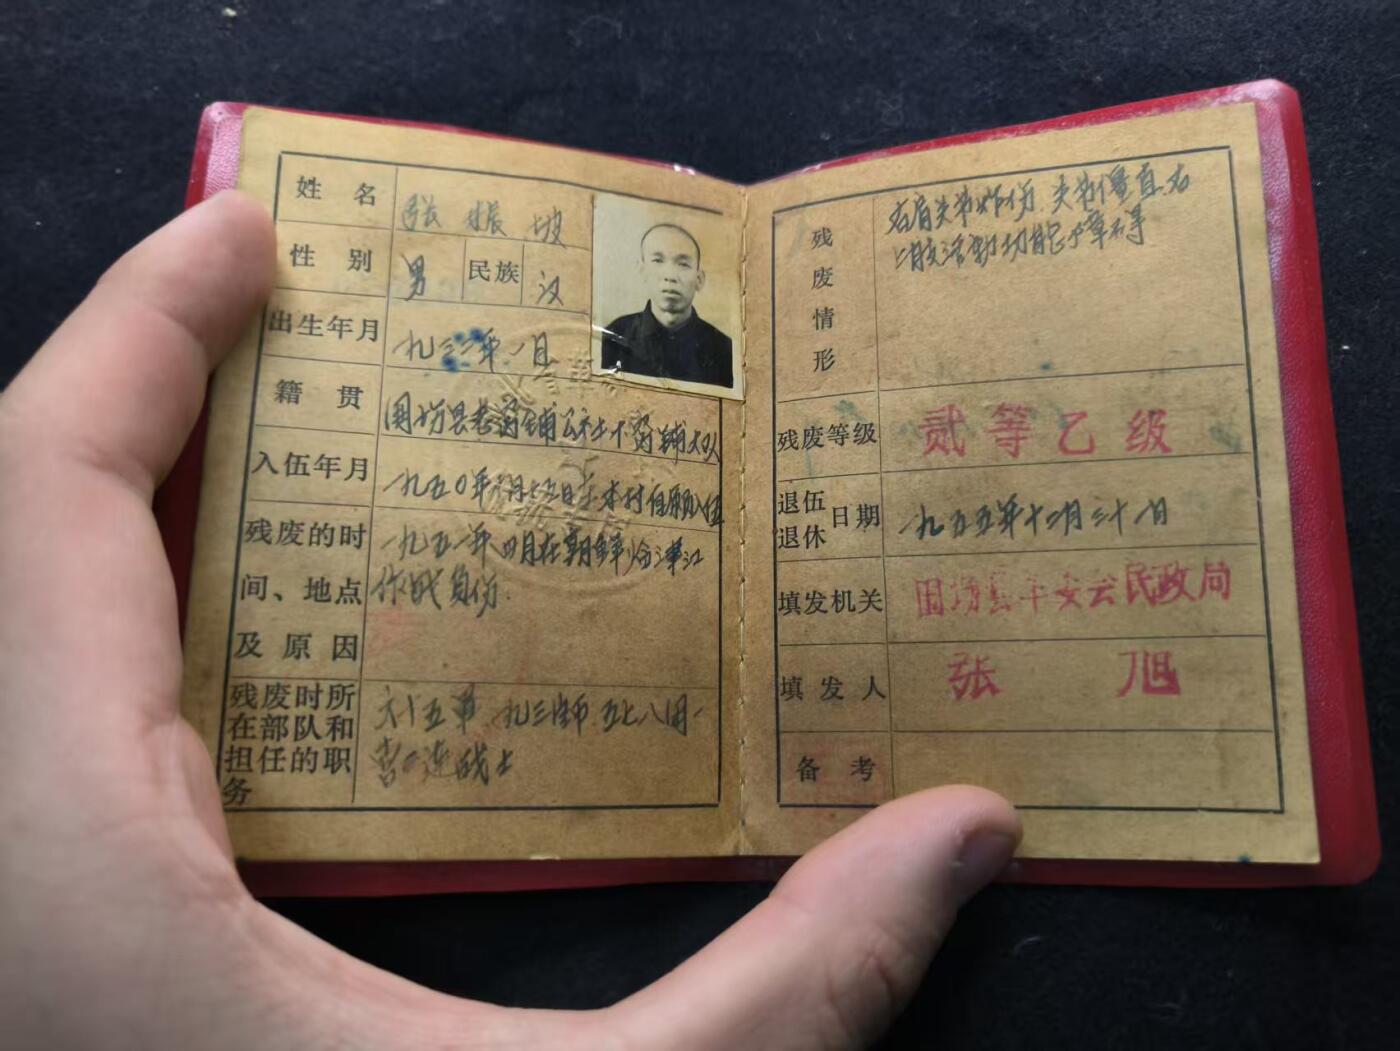 姓名 张振坡
性别 男 民族 汉
出生年月 一九三二年一月
籍贯 围场县老窝铺公社下窝铺大队
入伍年月 一九五〇年 月十五日在本村自愿入伍
残废的时 一九五一年四月在朝鲜 江
间、地点 作战负伤.
及原因
残废时所 六十五军一九三师五七八团一
在部队和 营 连战士
担任的职
务
残废情形
右肩关节炸伤.关节僵直.右
上肢活动功能障碍等
残废等级 贰等乙级
退伍退休日期 一九五五年十二月三十一日
填发机关 围场县 民政局
填发人 张旭
备考